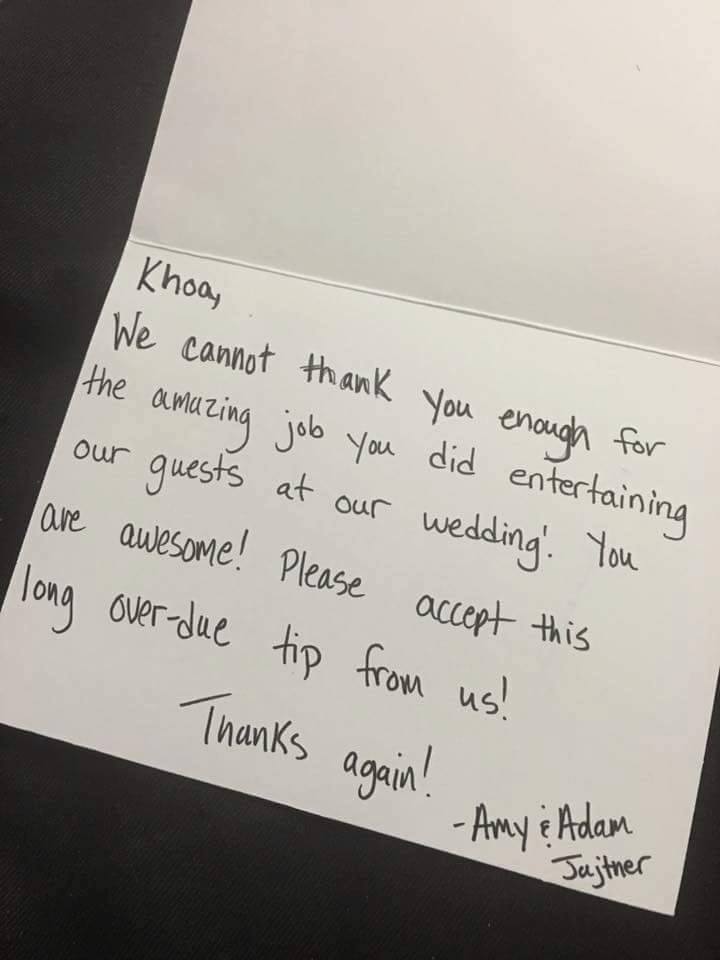 Khoa,
We cannot thank you enough for
the amazing job you did entertaining
our guests at our wedding! You
are awesome! Please accept this
long over-due tip from us!
Thanks again!
-Amy & Adam
Jujtner